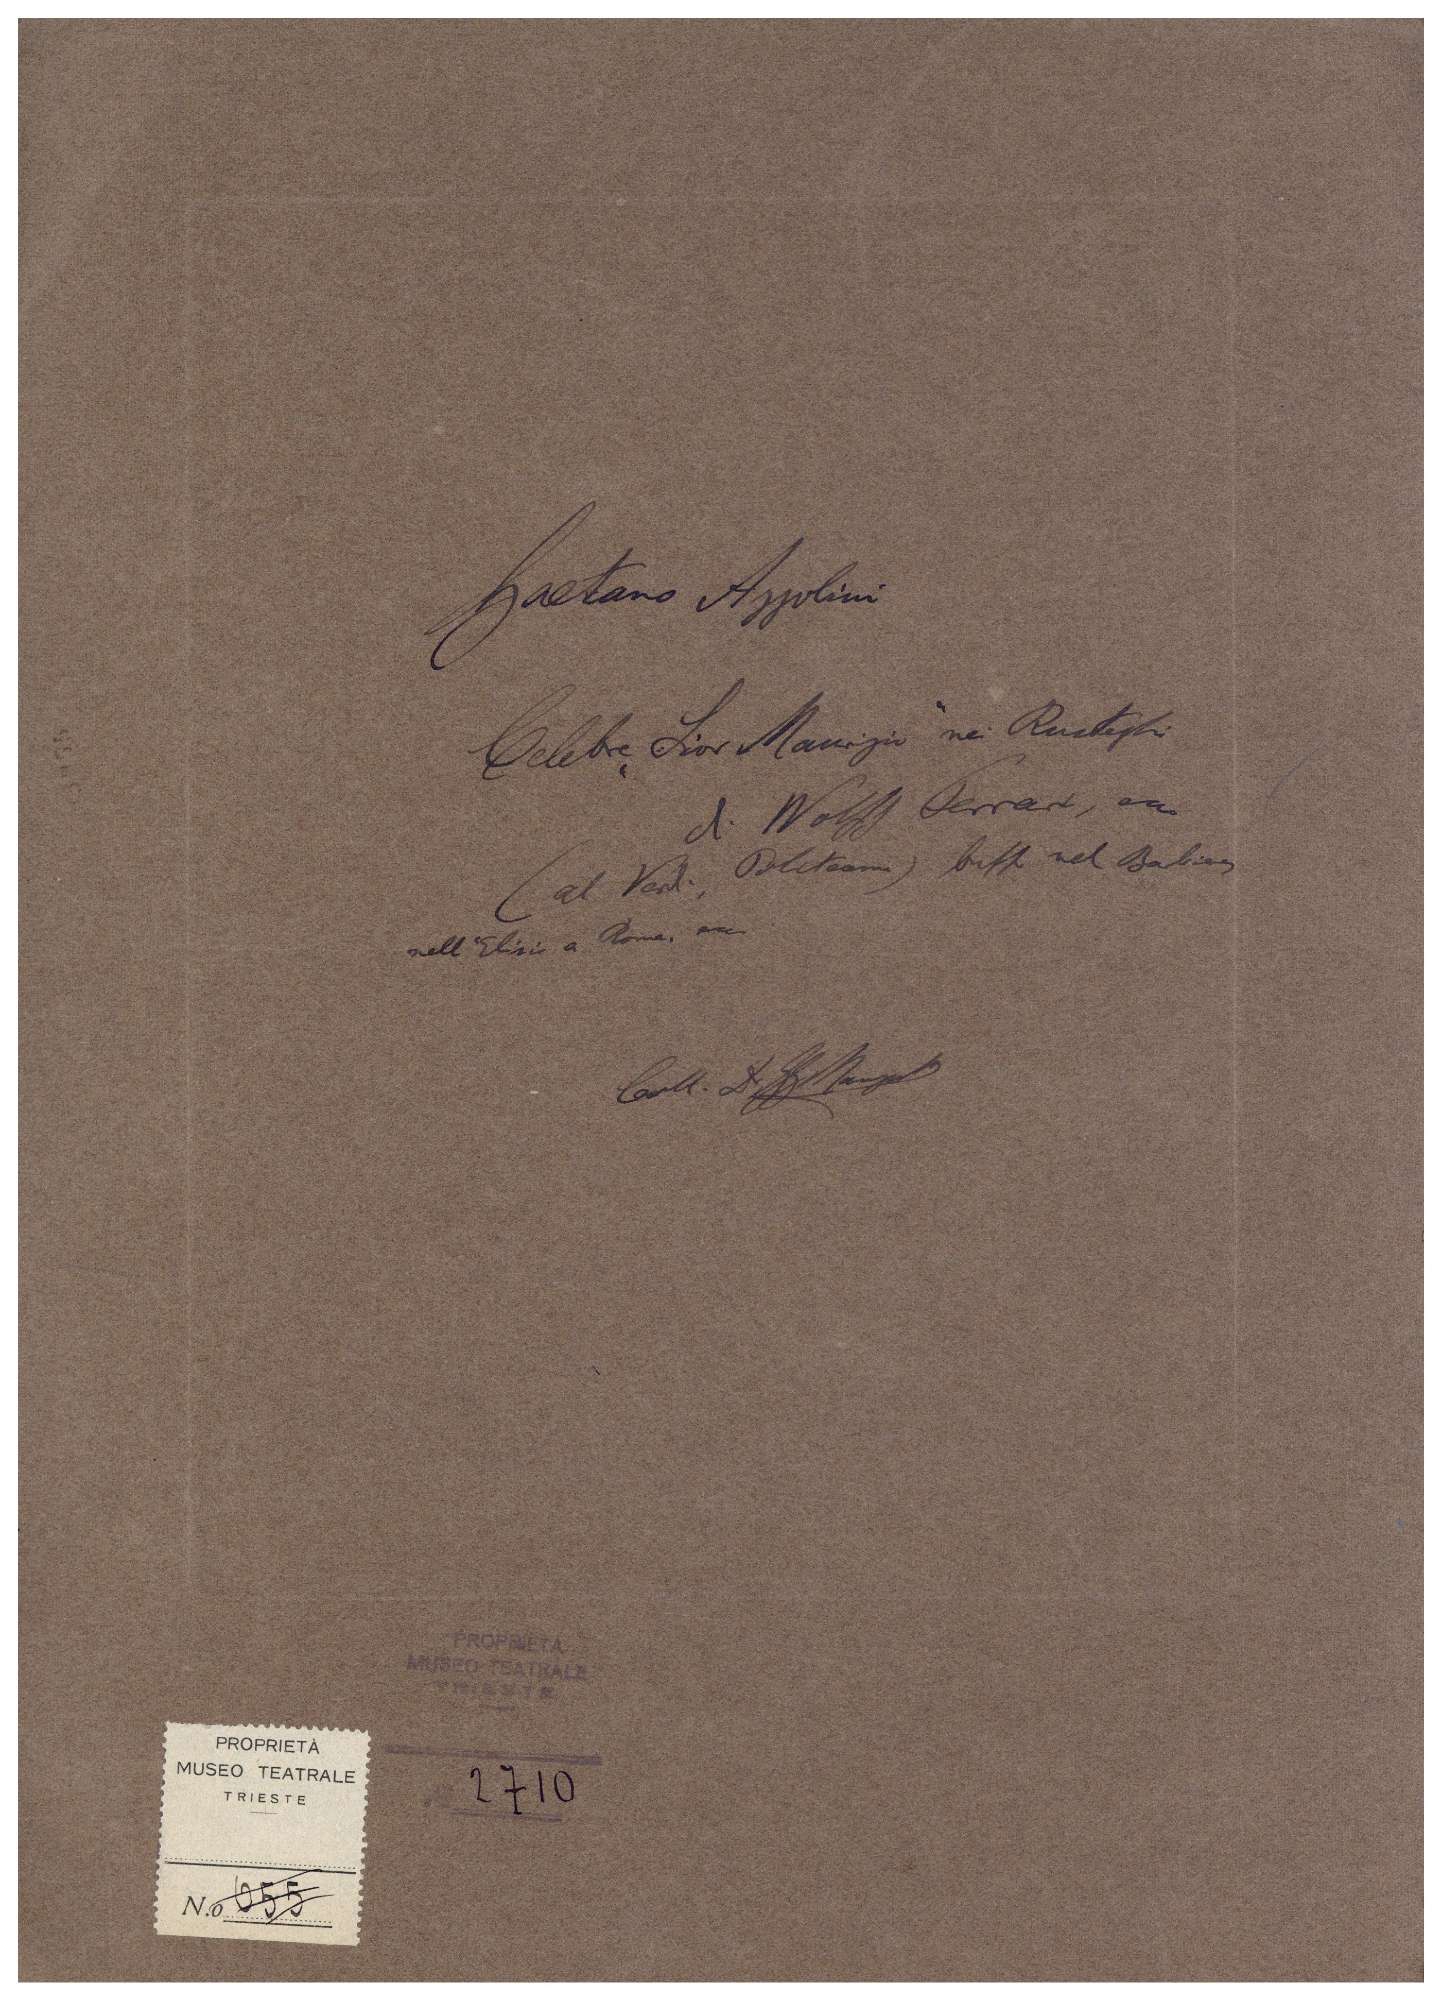 Gaetano Azzolini
Celebre "Sior Maurizio" nei Rusteghi
di Wolff Ferrari, ecc
(al Verdi, Politeama) buffo nel Barbiere
nell'Elisir a Roma, ecc
Coll. Dr
PROPRIETÀ
MUSEO TEATRALE
TRIESTE
2710
PROPRIETÀ
MUSEO TEATRALE
TRIESTE
N.o 655